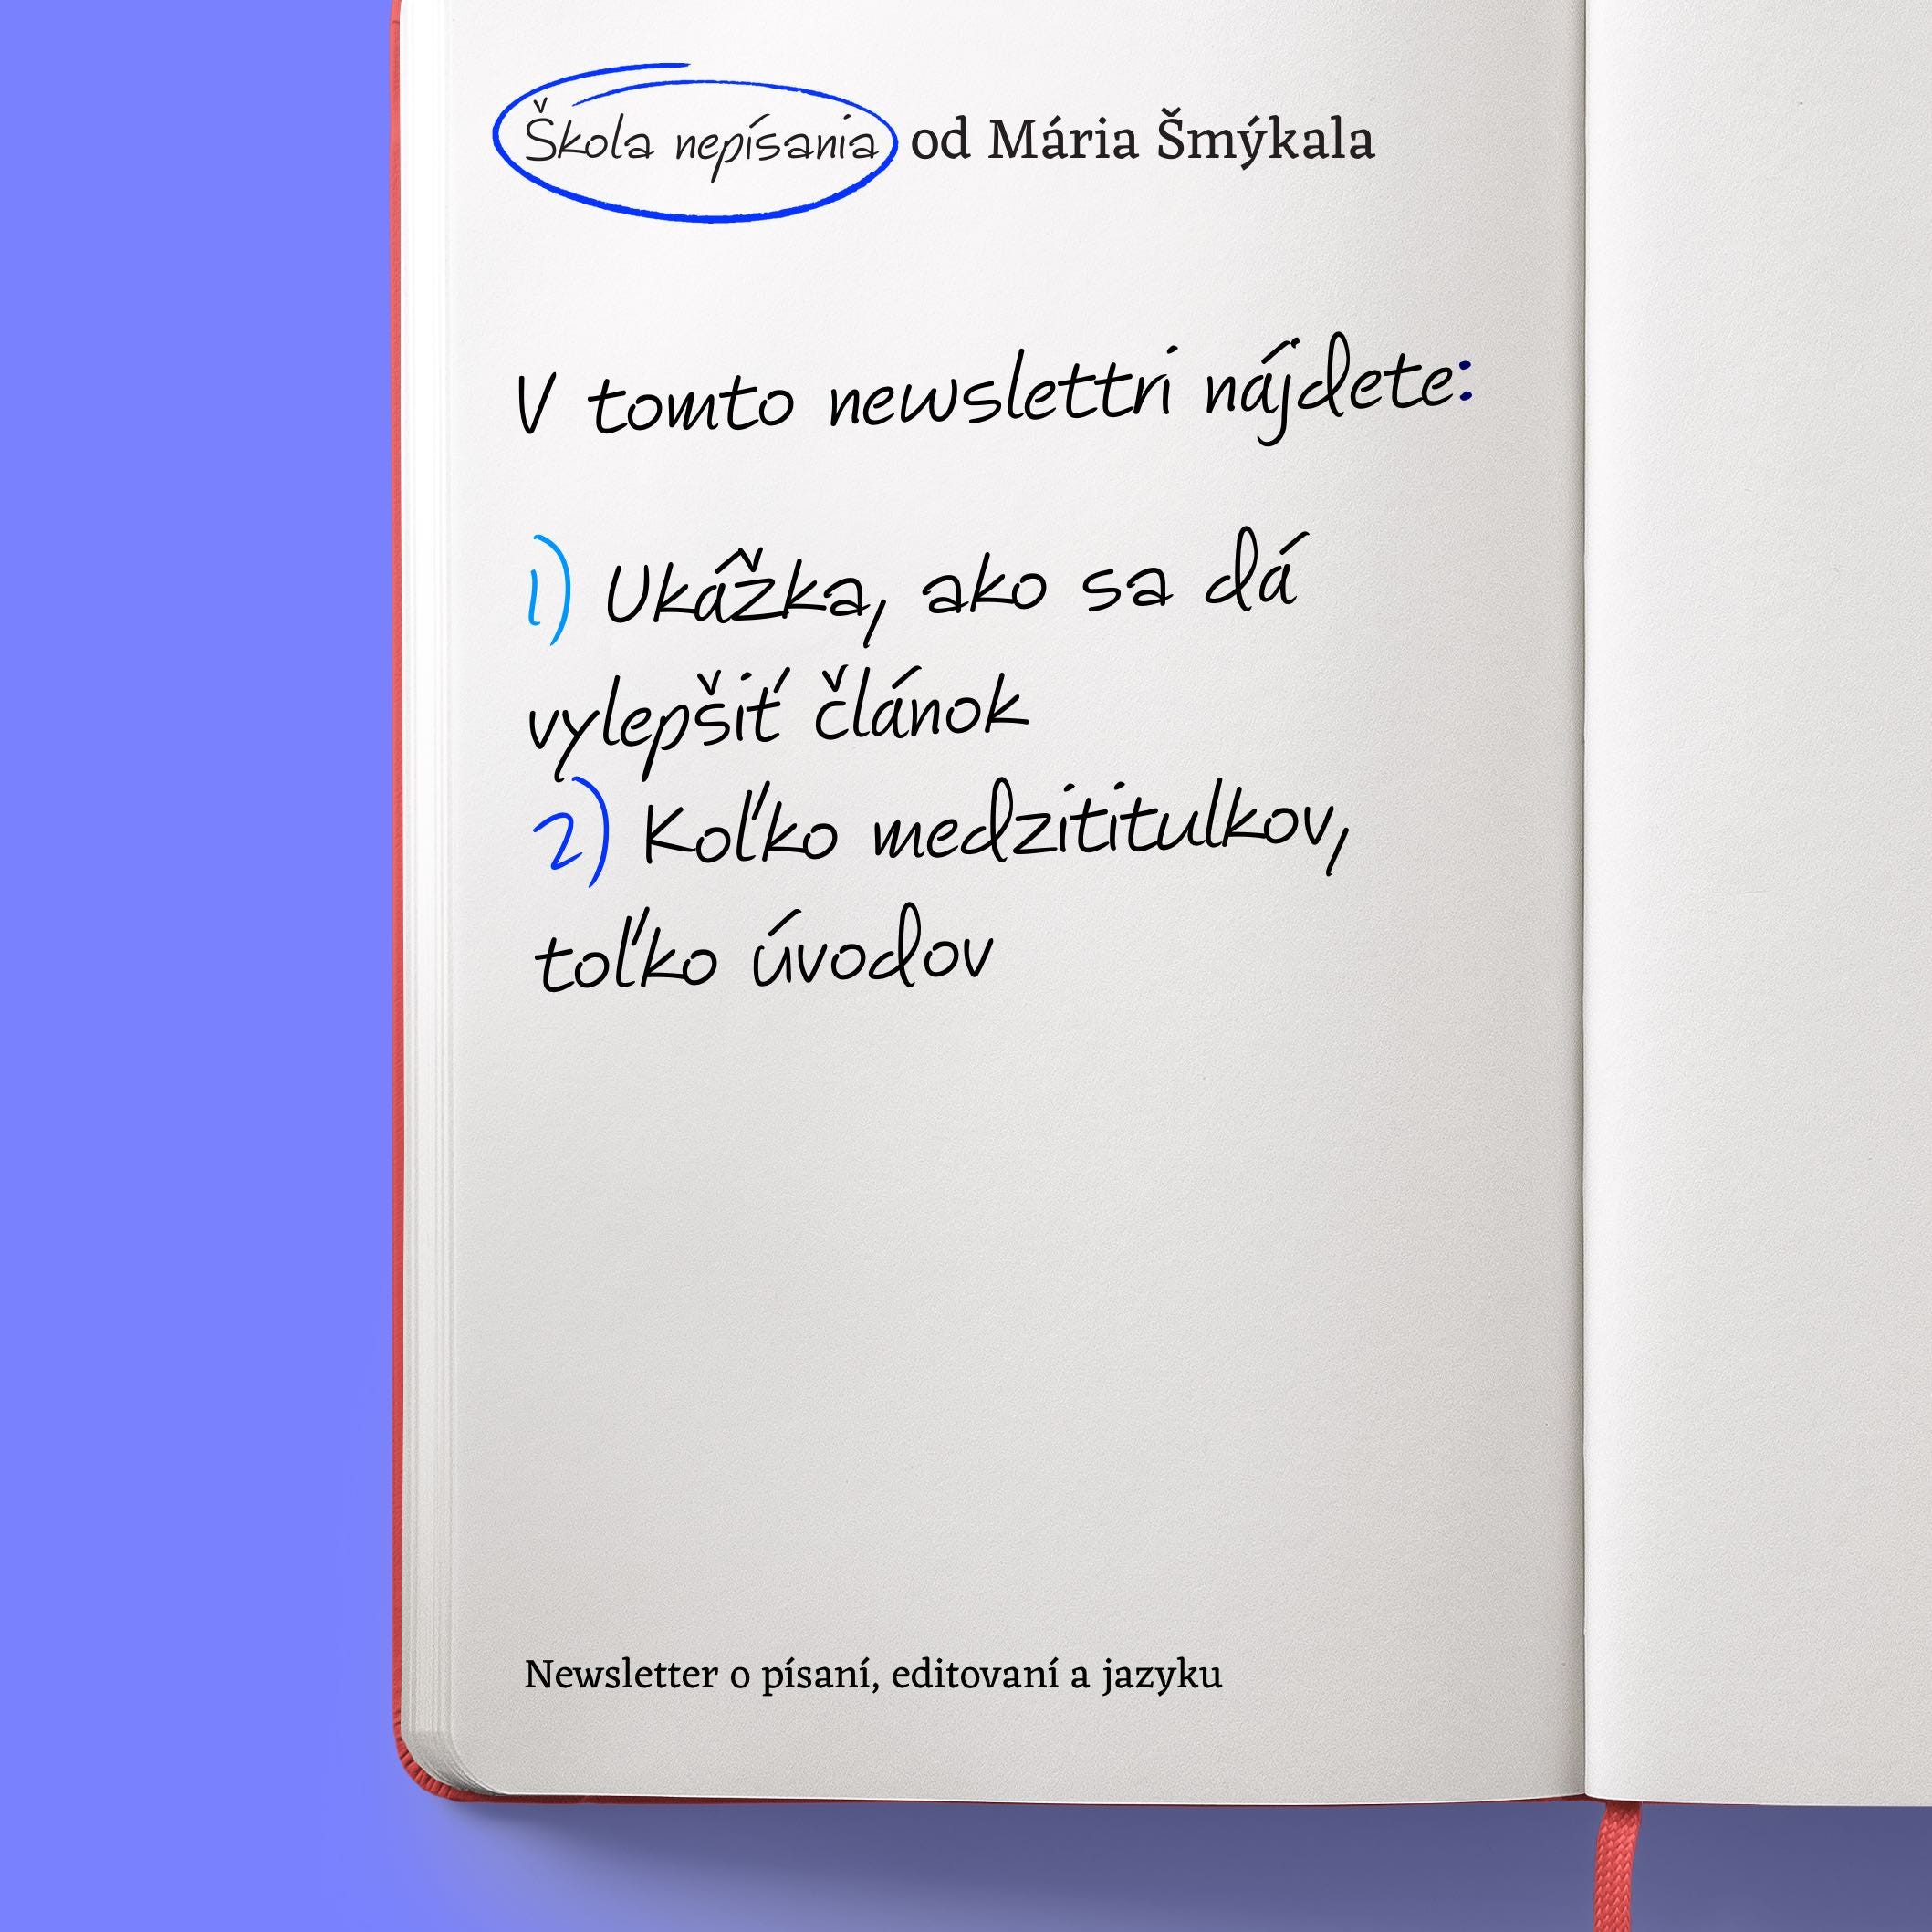 Škola nepísania od Mária Šmýkala
V tomto newslettri nájdete:
1) Ukážka, ako sa dá
vylepšiť článok
2) Koľko medzititulkov,
toľko úvodov
Newsletter o písaní, editovaní a jazyku